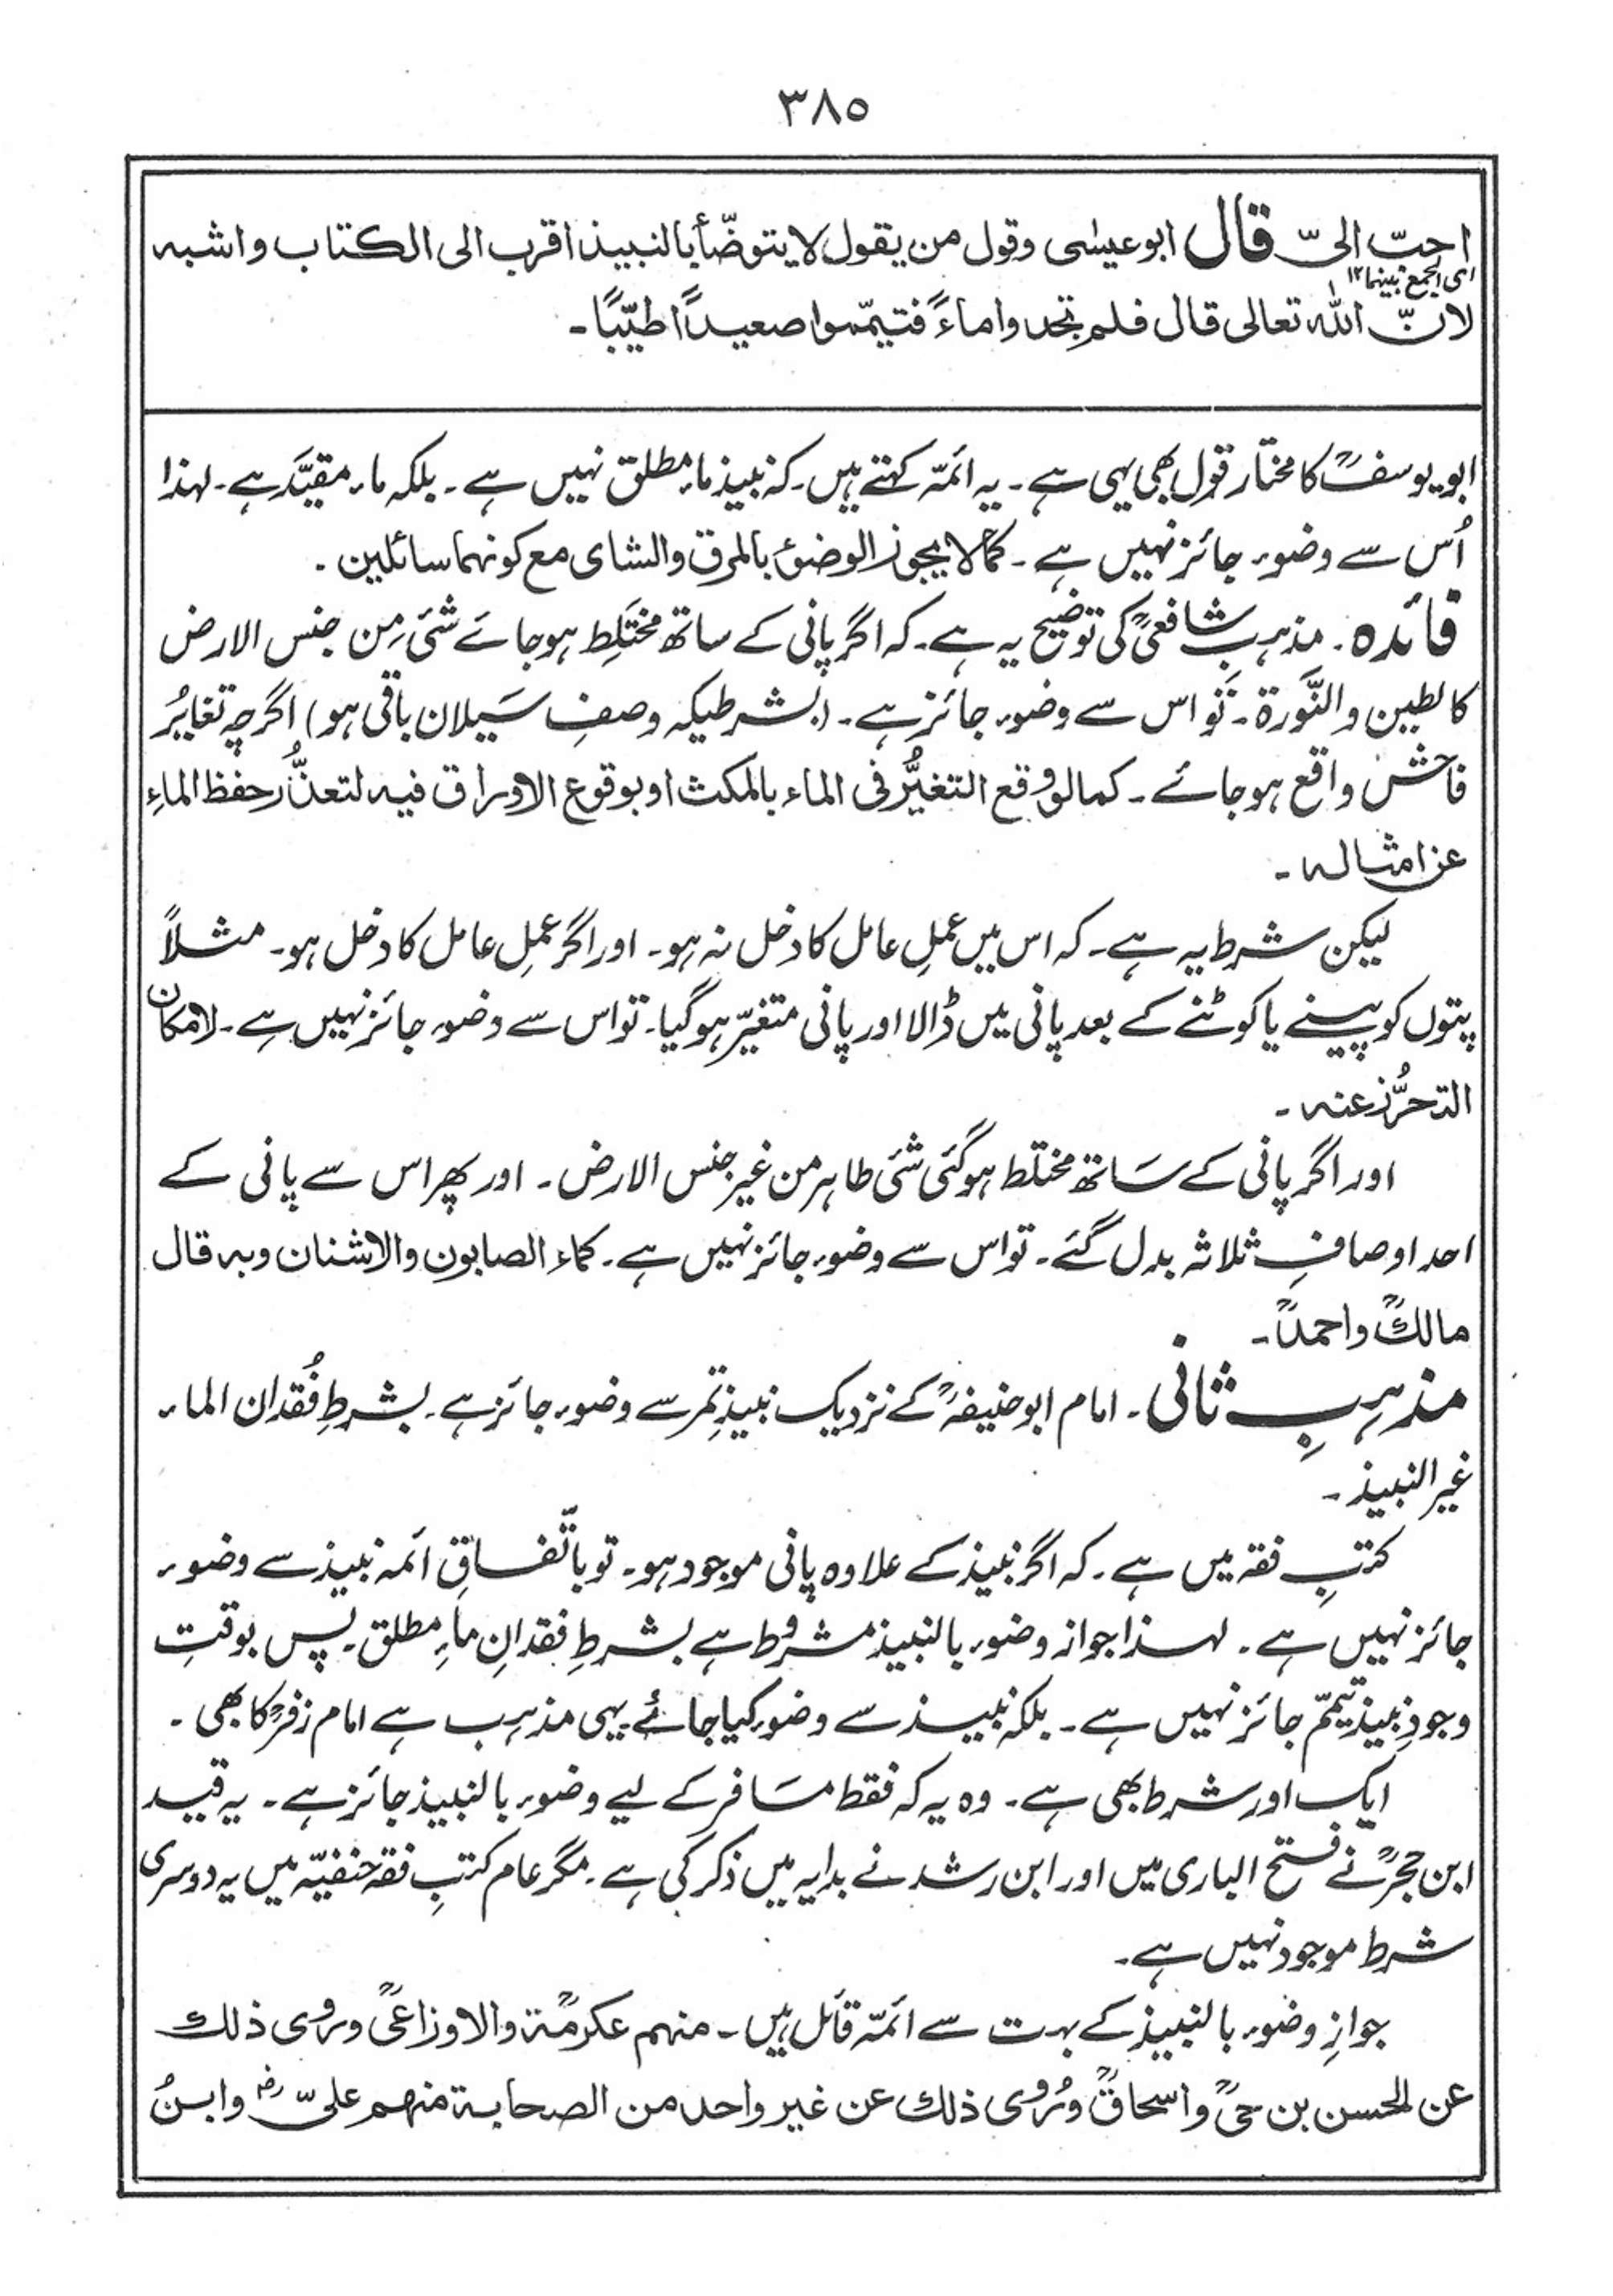 ٣٨٥
احبّ الیّ قال ابو عیسٰی وقول من یقول لا یتوضّأ بالنبیذ اقرب الی الکتاب واشبہ
ای الجمع بینہما ١٢
لانّ اللہ تعالی قال فلم تجدوا ماءً فتیمّموا صعیدًا طیّبًا۔
ابو یوسفؒ کا مختار قول بھی یہی ہے۔ یہ ائمّہ کہتے ہیں۔ کہ نبیذ ماءِ مطلق نہیں ہے۔ بلکہ ماء مقیَّد ہے۔ لہذا
اُس سے وضوء جائز نہیں ہے۔ کما لا یجوز الوضوء بالمرق والشای مع کونہما سائلین۔
فائدہ۔ مذہب شافعیؒ کی توضیح یہ ہے۔ کہ اگر پانی کے ساتھ مختَلِط ہو جائے شیٔ مِن جنس الارض
کالطین والنَّورۃ۔ تو اس سے وضوء جائز ہے۔ (بشرطیکہ وصفِ سَیلان باقی ہو) اگرچہ تغایُر
فاحش واقع ہو جائے۔ کما لو وقع التغیُّر فی الماء بالمکث او بوقوع الاوراق فیہ لتعذُّر حفظ الماءِ
عن امثالہ۔
لیکن شرط یہ ہے۔ کہ اس میں عملِ عامل کا دخل نہ ہو۔ اور اگر عملِ عامل کا دخل ہو۔ مثلاً
پتوں کو پیسنے یا کوٹنے کے بعد پانی میں ڈالا اور پانی متغیّر ہو گیا۔ تو اس سے وضوء جائز نہیں ہے۔ لامکان
التحرُّز عنہ۔
اور اگر پانی کے سَاتھ مختلط ہو گئی شیٔ طاہر من غیر جنس الارض۔ اور پھر اس سے پانی کے
احد اوصافِ ثلاثہ بدل گئے۔ تو اس سے وضوء جائز نہیں ہے۔ کماء الصابون والاشنان وبہ قال
مالکؒ واحمدؒ۔
مذہبِ ثانی۔ امام ابو حنیفہؒ کے نزدیک نبیذِ تمر سے وضوء جائز ہے۔ بشرطِ فُقدان الماء
غیر النبیذ۔
کتبِ فقہ میں ہے۔ کہ اگر نبیذ کے علاوہ پانی موجود ہو۔ تو باتّفاقِ ائمہ نبیذ سے وضوء
جائز نہیں ہے۔ لہذا جواز وضوء بالنبیذ مشروط ہے بشرطِ فقدانِ ماءِ مطلق۔ پس بوقتِ
وجودِ نبیذ تیمّم جائز نہیں ہے۔ بلکہ نبیذ سے وضوء کیا جائے یہی مذہب ہے امام زفرؒ کا بھی۔
ایک اور شرط بھی ہے۔ وہ یہ کہ فقط مسَافر کے لیے وضوء بالنبیذ جائز ہے۔ یہ قید
ابن حجرؒ نے فتح الباری میں اور ابن رشد نے بدایہ میں ذکر کی ہے۔ مگر عام کتبِ فقہ حنفیّہ میں یہ دوسری
شرط موجود نہیں ہے۔
جوازِ وضوء بالنبیذ کے بہت سے ائمّہ قائل ہیں۔ منہم عکرمۃؒ والاوزاعیؒ وروی ذلک
عن الحسن بن حیؒ واسحاقؒ ورُوی ذلک عن غیر واحد من الصحابۃ منہم علیّ ؓ وابنُ